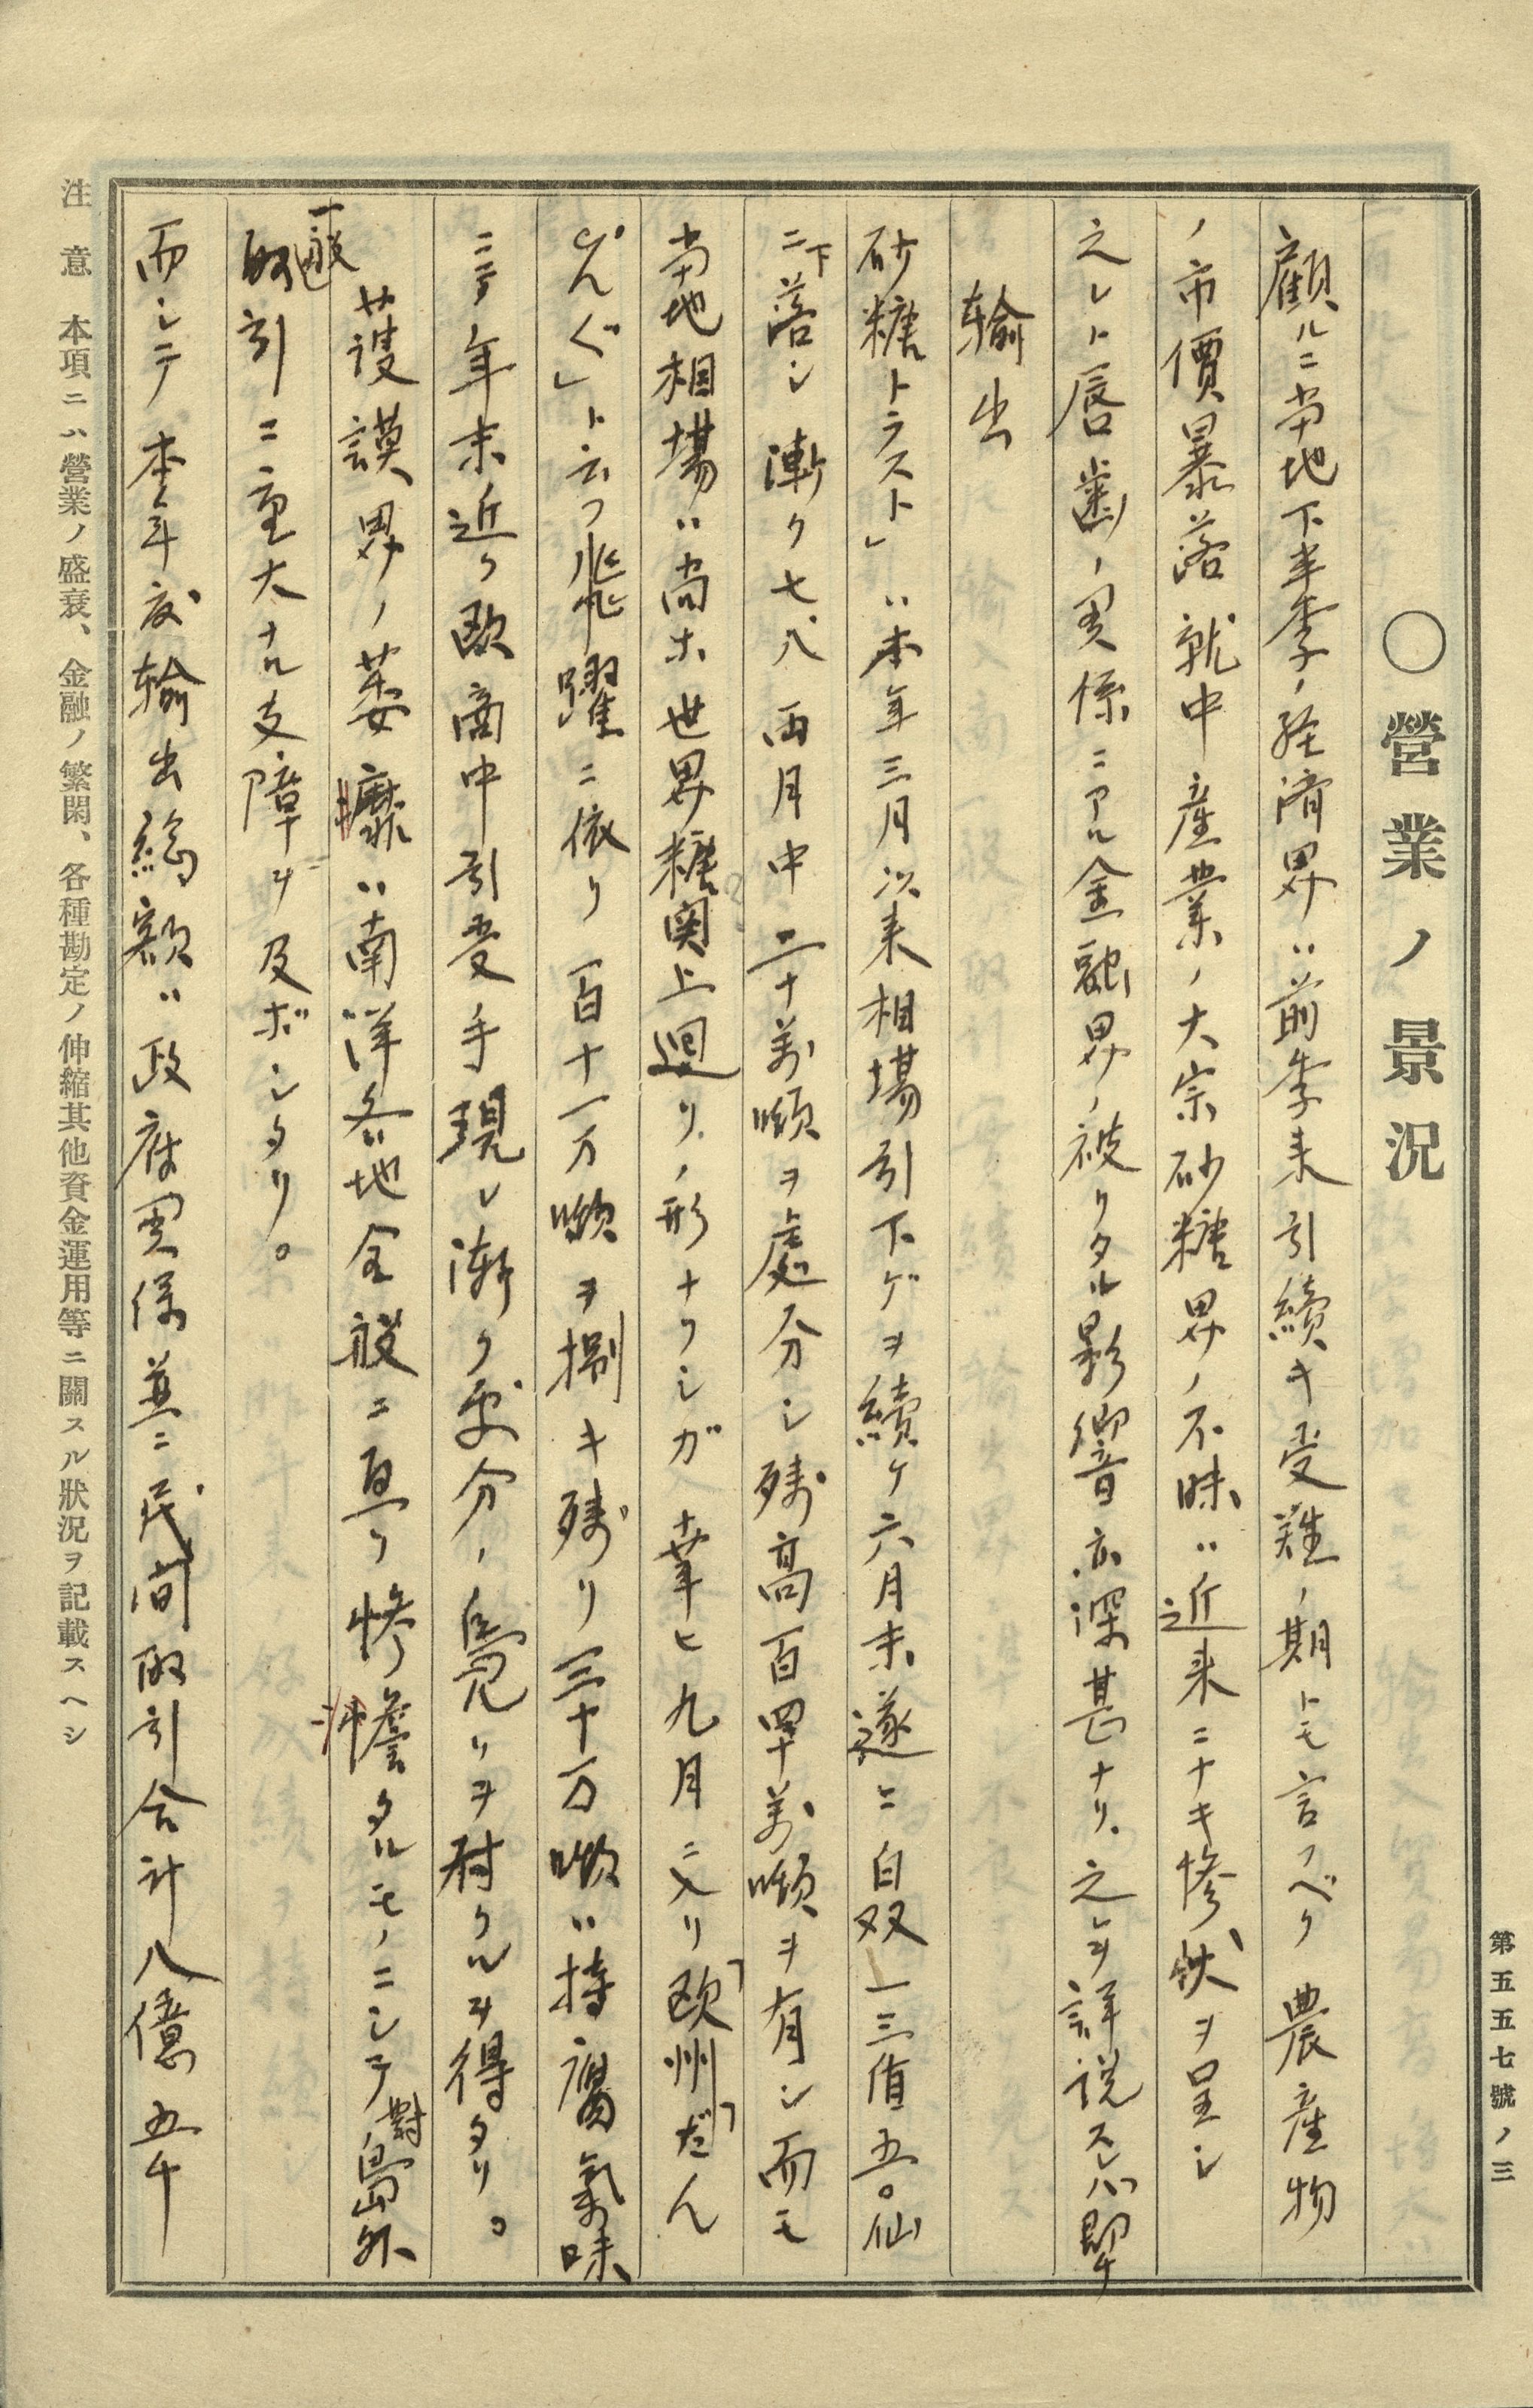 第五五七號ノ三
〇營業ノ景況
顧ルニ當地下半季ノ経済界ハ前季来引續キ受難ノ期トモ言フベク農産物
ノ市價暴落就中産業ノ大宗砂糖界ノ不味ハ近来ニナキ惨状ヲ呈シ
之レト唇歯ノ関係ニアル金融界ノ被リタル影響亦深甚ナリ。之レヲ詳説スレバ即チ
輸出
砂糖トラスト」ハ本年三月以来相場引下ゲヲ續ケ六月末遂ニ白双一三值五〇仙
ニ下落シ漸ク七、八両月中二十萬噸ヲ處分シ残高百四十萬噸ヲ有シ而モ
當地相場ハ尚ホ世界糖関上廻リノ形ナリシガ幸ヒ九月ニ入リ「欧州「だん
ぴんぐ」ト云フ飛躍ニ依リ一百十一万噸ヲ捌キ残リ三十万噸ハ持腐氣味
ニテ年末近ク欧商中引受手現レ漸ク處分ノ見凭リヲ付クルヲ得タリ。
一般護謨界ノ萎靡ハ南洋各地全般ニ亘リ惨憺タルモノニシテ對島外
取引ニ重大ナル支障ヲ及ボシタリ。
而シテ本年度輸出総額ハ政府関係並ニ民間取引合計八億五千
注意 本項ニハ營業ノ盛衰、金融ノ繁閑、各種勘定ノ伸縮其他資金運用等ニ關スル狀況ヲ記載スヘシ